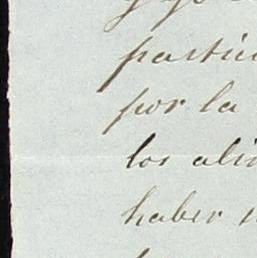 y yo
particu
por la
los alim
haber